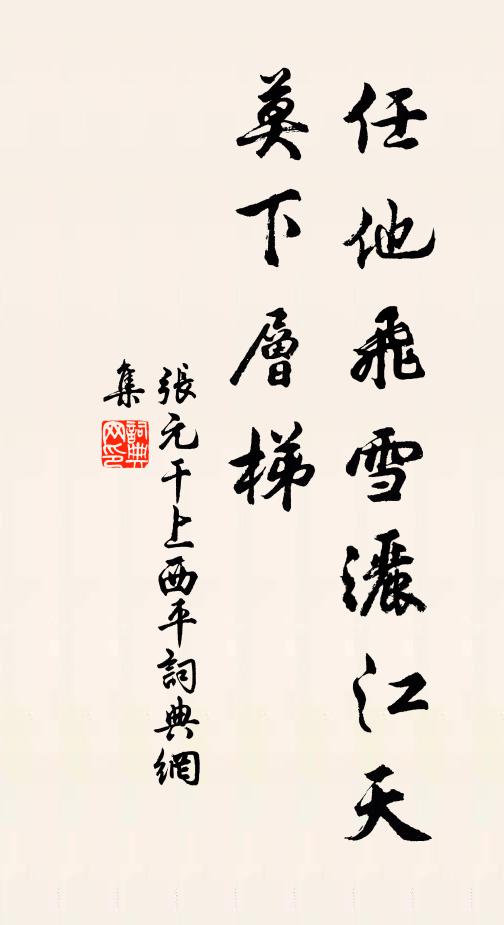 任他飛雪灑江天
莫下層梯
張元干上西平詞典網
集
詞典网印